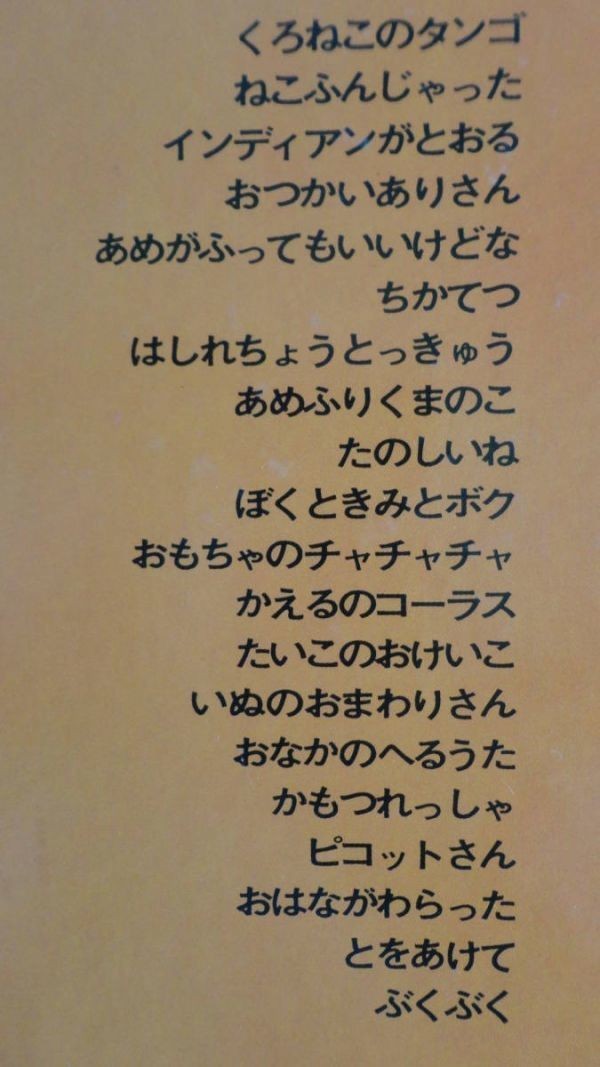 くろねこのタンゴ
ねこふんじゃった
インディアンがとおる
おつかいありさん
あめがふってもいいけどな
ちかてつ
はしれちょうとっきゅう
あめふりくまのこ
たのしいね
ぼくときみとボク
おもちゃのチャチャチャ
かえるのコーラス
たいこのおけいこ
いぬのおまわりさん
おなかのへるうた
かもつれっしゃ
ピコットさん
おはながわらった
とをあけて
ぶくぶく